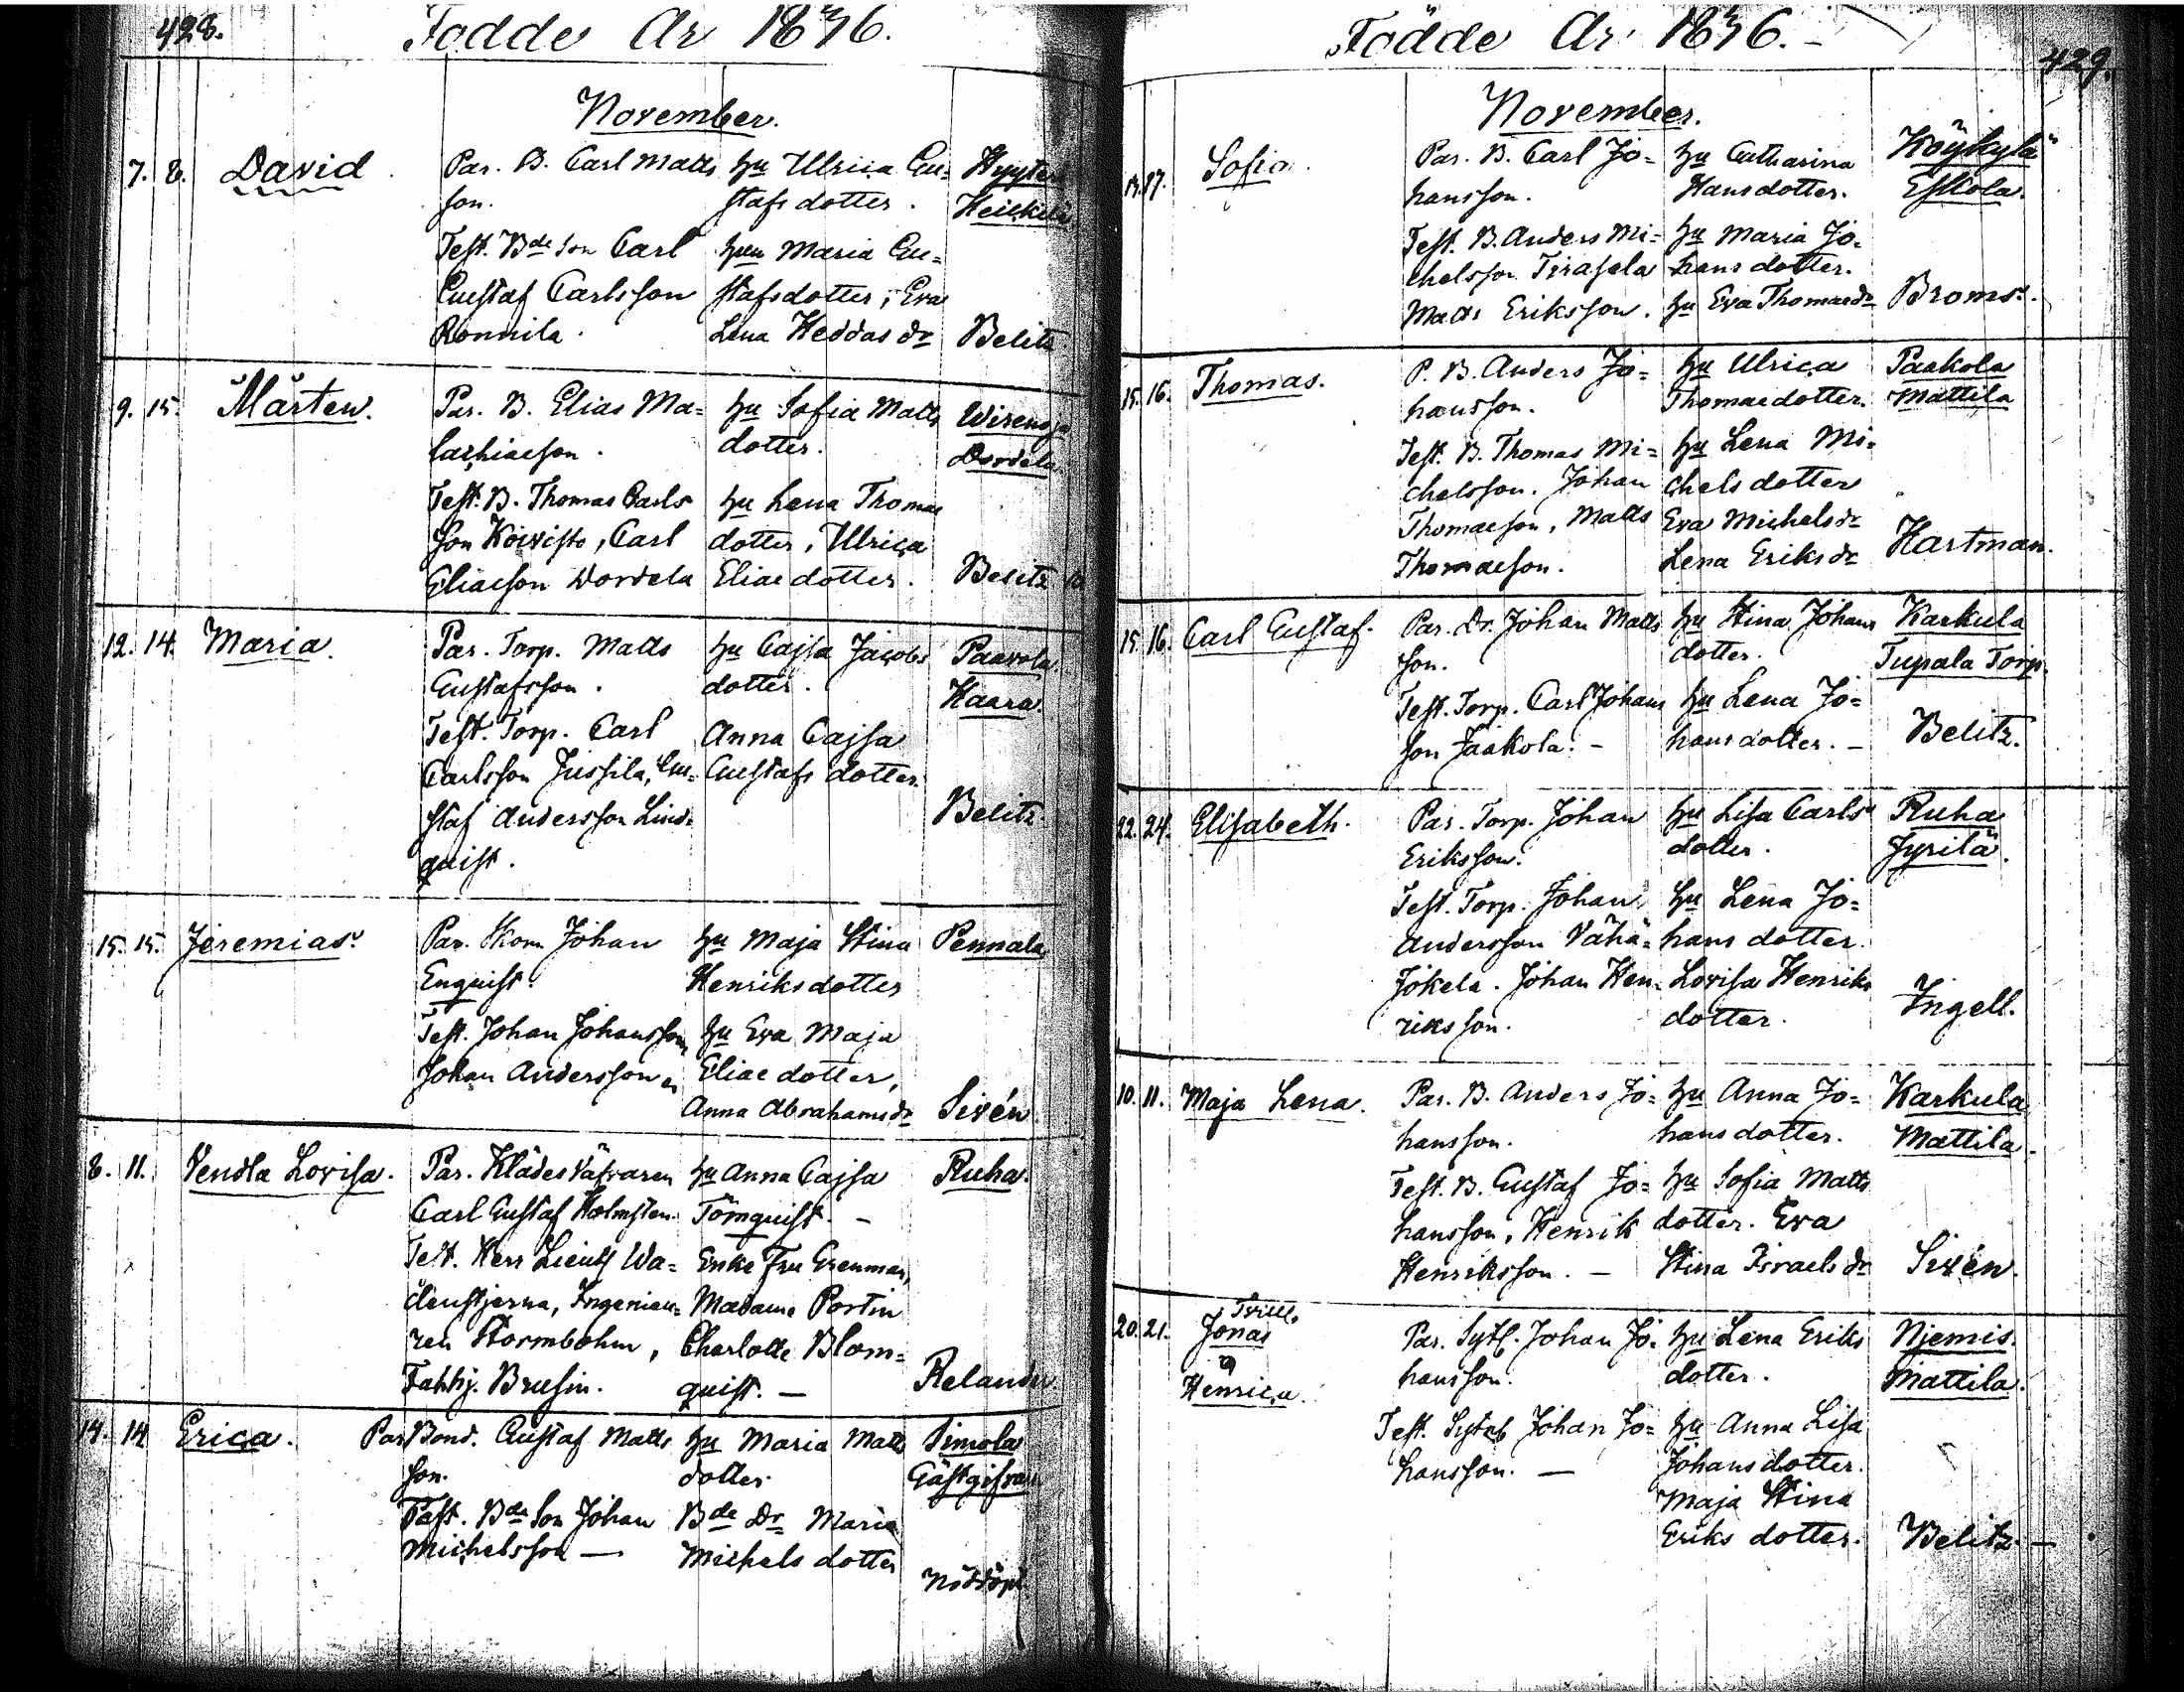 428.
Födde År 1836.
November.
7. 8. David.
Par. B. Carl Matts
son.
Test. Bde son Carl
Gustaf Carlsson
Ronnila.
hu Ulrica Gu=
stafs dotter.
hun Maria Gu=
stafsdotter, Eva
Lena Heddas dr
Hyyter
Heikkilä
Belitz.
9. 15. Mårten.
Par. B. Elias Ma=
lachiaeson.
Test. B. Thomas Carls
son Koivisto, Carl
Eliaeson Wordela
hu Sofia Matts
dotter.
hu Lena Thomae
dotter, Ulrica
Eliae dotter.
Wirenoja
Wordela
Belitz
12. 14. Maria.
Par. Torp. Matts
Gustafsson.
Test. Torp. Carl
Carlsson Jussila, Gu=
staf Andersson Lind=
quist.
hu Cajsa Jacobs
dotter.
Anna Cajsa
Gustafs dotter.
Paavola
Kaara.
Belitz.
15. 15. Jeremias.
Par. Skom Johan
Enquist.
Test. Johan Johansson,
Johan Andersson
hu Maja Stina
Henriksdotter
hu Eva Maja
Eliae dotter,
Anna Abrahams dr
Pennala
Sirén
8. 11. Vendla Lovisa.
Par. Klädesväfvaren
Carl Gustaf Holmsten.
Test. Herr Lieut Wa=
denstjerna, Ingenieu=
ren Stormbohm,
Fabhj. Brusin.
hu Anna Cajsa
Törnquist. —
Enke Fru Grenman,
Madame Portin
Charlotte Blom=
quist. —
Ruha.
Relander.
14. 14 Erica.
Par. Bond. Gustaf Matts
son.
Test. Bde son Johan
Michelsson —
hu Maria Matts
dotter.
Bde Dr Maria
Michels dotter
Simola
Gästgifvar
Nöddöpt.
Födde År 1836. —
429.
November.
17. Sofia.
Par. B. Carl Jo=
hansson.
Test. B. Anders Mi=
chelsson
Matts Eriksson.
hu Catharina
Hansdotter.
hu Maria Jo=
hans dotter.
hu Eva Thomaedr
Köykylä
Eskola.
Broms.
15. 16. Thomas.
P. B. Anders Jo=
hansson.
Test. B. Thomas Mi=
chelsson. Johan
Thomaeson, Matts
Thomaeson.
hu Ulrica
Thomaedotter.
hu Lena Mi=
chels dotter
Eva Michels dr
Lena Eriks dr
Paakola
Mattila
Hartman.
15. 16. Carl Gustaf.
Par. Dr. Johan Matts
son.
Test. Torp. Carl Johans
son Jaakola. —
hu Stina Johans
dotter.
hu Lena Jo=
hans dotter. —
Karkula
Tupala Torp.
Belitz.
22. 24. Elisabeth.
Par. Torp. Johan
Eriksson.
Test. Torp. Johan
Andersson Vähä=
Jokela. Johan Hen=
riksson.
hu Lisa Carls
dotter.
hu Lena Jo=
hans dotter.
Lovisa Henriks
dotter.
Ruha
Jyrilä.
Ingell.
10. 11. Maja Lena.
Par. B. Anders Jo=
hansson.
Test. B. Gustaf Jo=
hansson, Henrik
Henriksson. —
hu Anna Jo=
hans dotter.
hu Sofia Matts
dotter. Eva
Stina Israels dr
Karkula
Mattila.
Sirén.
20. 21. Tvill.
Jonas
&
Henrica.
Par. Sytl. Johan Jo=
hansson.
Test. Johan Jo=
hansson. —
hu Lena Eriks
dotter.
hu Anna Lisa
Johans dotter.
Maja Stina
Eriks dotter.
Njemis.
Mattila.
Belitz. —